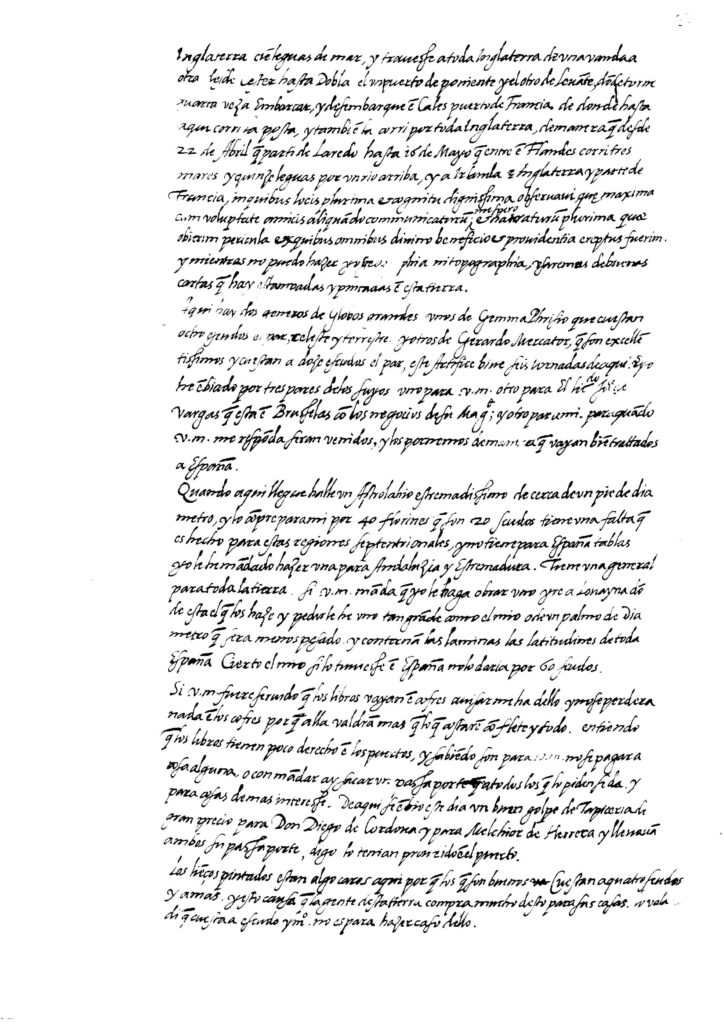 Inglaterra ciē leguas de mar, y trauesse a toda Inglaterra de vna vanda a
otra desde Cester hasta Dobla el vn puerto de poniente y el otro de Leuāte, dōde torne
quarta vez a Embarcar, y desembarque ē Cales puerto de Francia de donde hasta
aqui corri ta posta, y tambiē la corri por toda Inglaterra, de manera q̄ desde
22 de Abril q̄ parti de Laredo hasta 26 de Mayo q̄ entre ē Flandes corri tres
mares y quinse leguas por vn rio arriba, y a Irlanda e Inglaterra y parte de
Francia, in quibus locis plurima cognitu dignissima obseruaui que maxima
cum voluptate amicis aliquādo communicaturū me spero et narraturū plurima que
obierim pericula ex quibus omnibus diuino beneficio et prouidentia ereptus fuerim.
y mientras no puedo hazer phia ni topographia, vsaremos de buenas
cartas q̄ hay estampadas y pintadas ē esta tierra.
Aqui hay dos generos de Globos grandes vnos de Gemma Phrisio que cuestan
ocho escudos el par, celeste y terrestre. y otros de Gerardo Mercator, q̄ son excellē
tissimos y cuestan a dose escudos el par, este Artifice biue seis iornadas de aqui. Eyo
he ēbiado por tres pares de los suyos vno para .v.m. otro para El licdo
Vargas q̄ esta ē Brusselas cō los negocios de su Magt; y otro para mi. para quādo
.v.m. me respōda seran venidos, y los pornemos de manera q̄ vayan biē trattados
a España.
Quando aqui llegue halle vn Astrolabio estremadissimo de cerca de vn pie de dia
metro, y lo cōpre para mi por 40 florines q̄ son 20 scudos tiene vna falta q̄
es hecho para estas regiones septentrionales, y no tiene para España tablas
yo le he mādado hazer vna para Andaluzia y Estremadura. Tiene vna general
para toda la tierra. si .v.m. māda q̄ yo le haga obrar vno yre a Louayna dō
de esta el q̄ los haze y pedirle he vno tan grāde como el mio o de vn palmo de Dia
metro q̄ sera menos pesado y conternā las laminas las latitudines de toda
España Cierto el mio si lo tuuiesse ē España no lo daria por 60 scudos.
Si .v.m. fuere seruido q̄ los libros vayan ē cofres auisarme ha dello y no se perdera
nada ē los cofres por q̄ alla valdrā mas q̄ lo q̄ costarē cō flete y todo. entiendo
q̄ los libros tienen poco derecho ē los puertos, y sabiēdo son para .v.m. no se pagara
cosa alguna, o con mādar ay sacar vn passaporte q̄ a todos los q̄ lo piden se da. y
para cosas de mas interesse. De aqui se ēbio este dia vn buen golpe de Tapiceria de
gran precio para Don Diego de Cordoua y para Melchior de Herrera y lleuauā
ambos su passaporte, digo lo tenian proueido ē el puerto.
Los liēços pintados estan algo caros aqui por q̄ los q̄ son buenos Cuestan a quatro scudos
y a mas. y esto causa q̄ la gente desta tierra compra mucho desto para sus casas.
di q̄ cuesta a escudo y mo. no es para hazer caso dello.